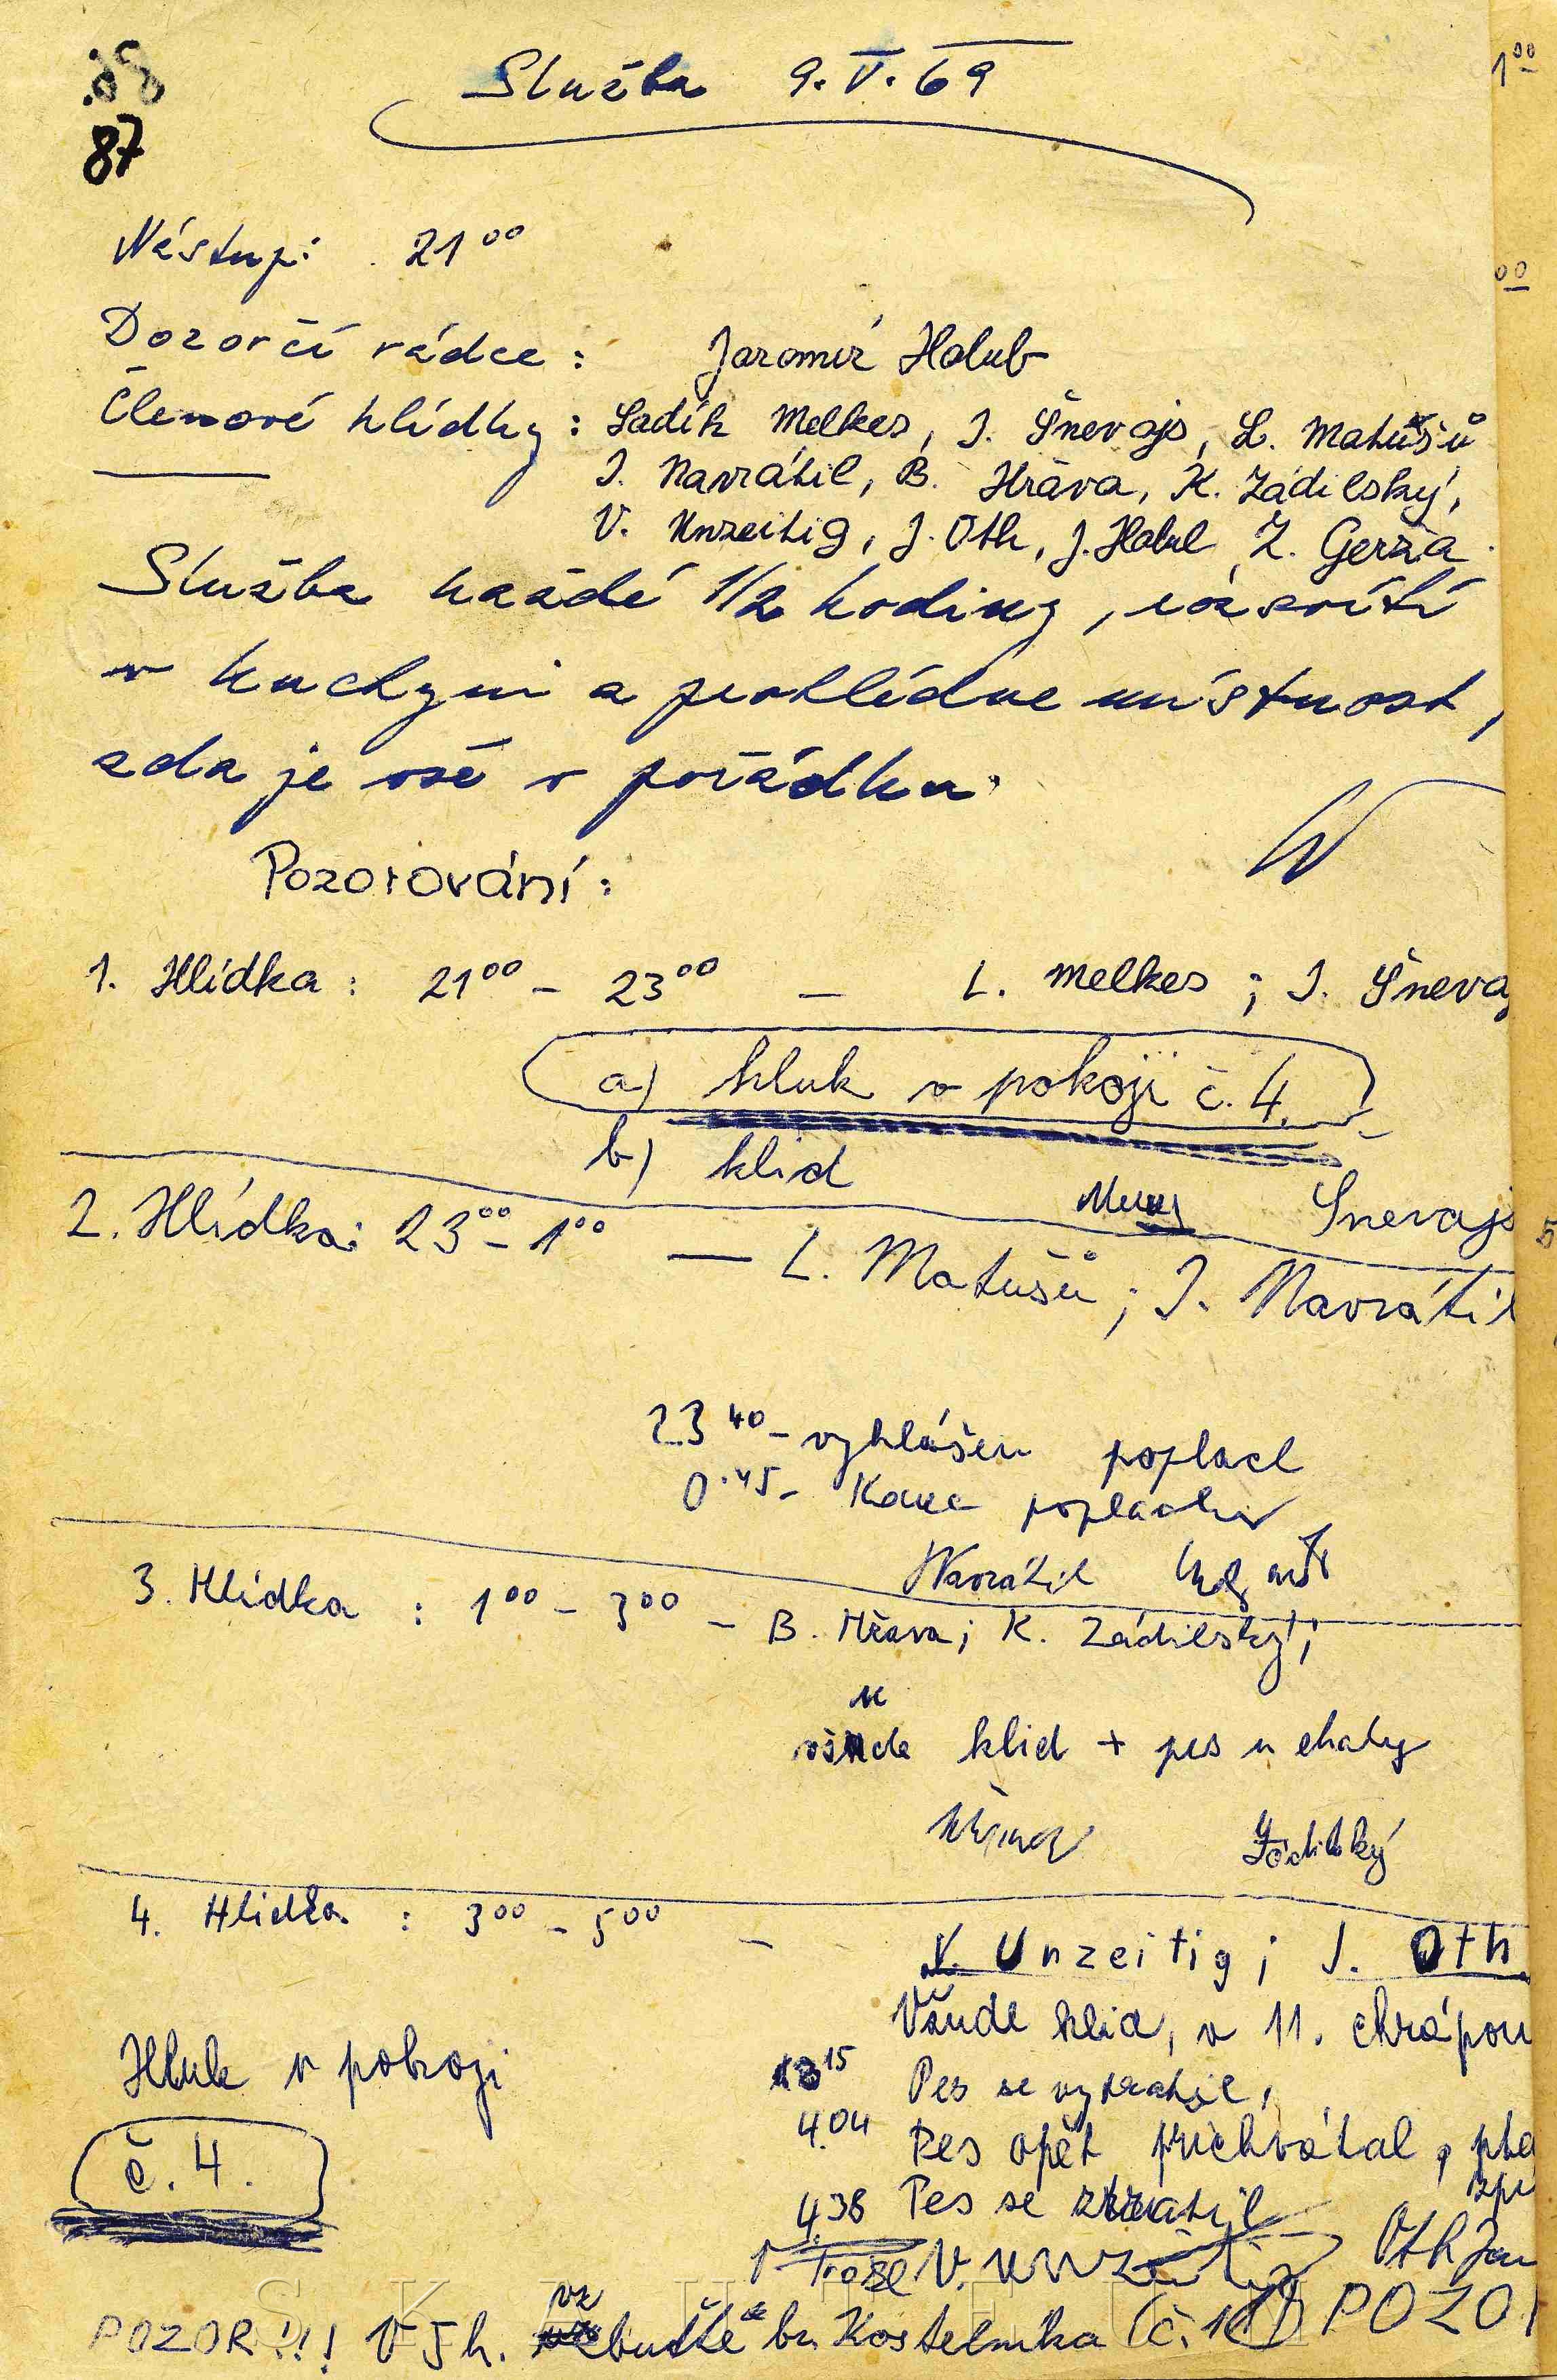 87
Služba 9. V. 69
1 00
00
Nástup: 21 00
Dozorčí rádce: Jaromír Holub
Členové hlídky: Ladík Melkes, J. Šnevajs, L. Matušů
J. Navrátil, B. Hrava, K. Zádilský,
V. Unzeitig, J. Oth, J. Z. Gerža
Služba každé 1/2 hodiny, rozsvítí
v kuchyni a prohlédne místnost,
zda je vše v pořádku.
Pozorování:
1. Hlídka: 21 00 - 23 00 - L. Melkes; J. Šnevaj
a) hluk v pokoji č. 4.
b) klid
Šnevajs
2. Hlídka: 23 00 - 1 00 — L. Matušů; J. Navrátil
23 40 - vyhlášen poplach
0.45 - Konec poplachu
Navrátil
3. Hlídka: 1 00 - 3 00 - B. Hrava; K. Zádilský;
všude klid + pes u chaty
Zádilský
4. Hlídka: 3 00 - 5 00 -
V. Unzeitig; J. Oth
Všude klid, v 11. chrápou
Hluk v pokoji
č. 4.
3 15 Pes se vytratil,
4.04 Pes opět přichvátal, ptá
zpí
4.38 Pes se ztratil
V. Unzeitig Oth Jan
POZOR!!! V 5 h. vzbuďte br. Kostelníka (č. 11) POZO